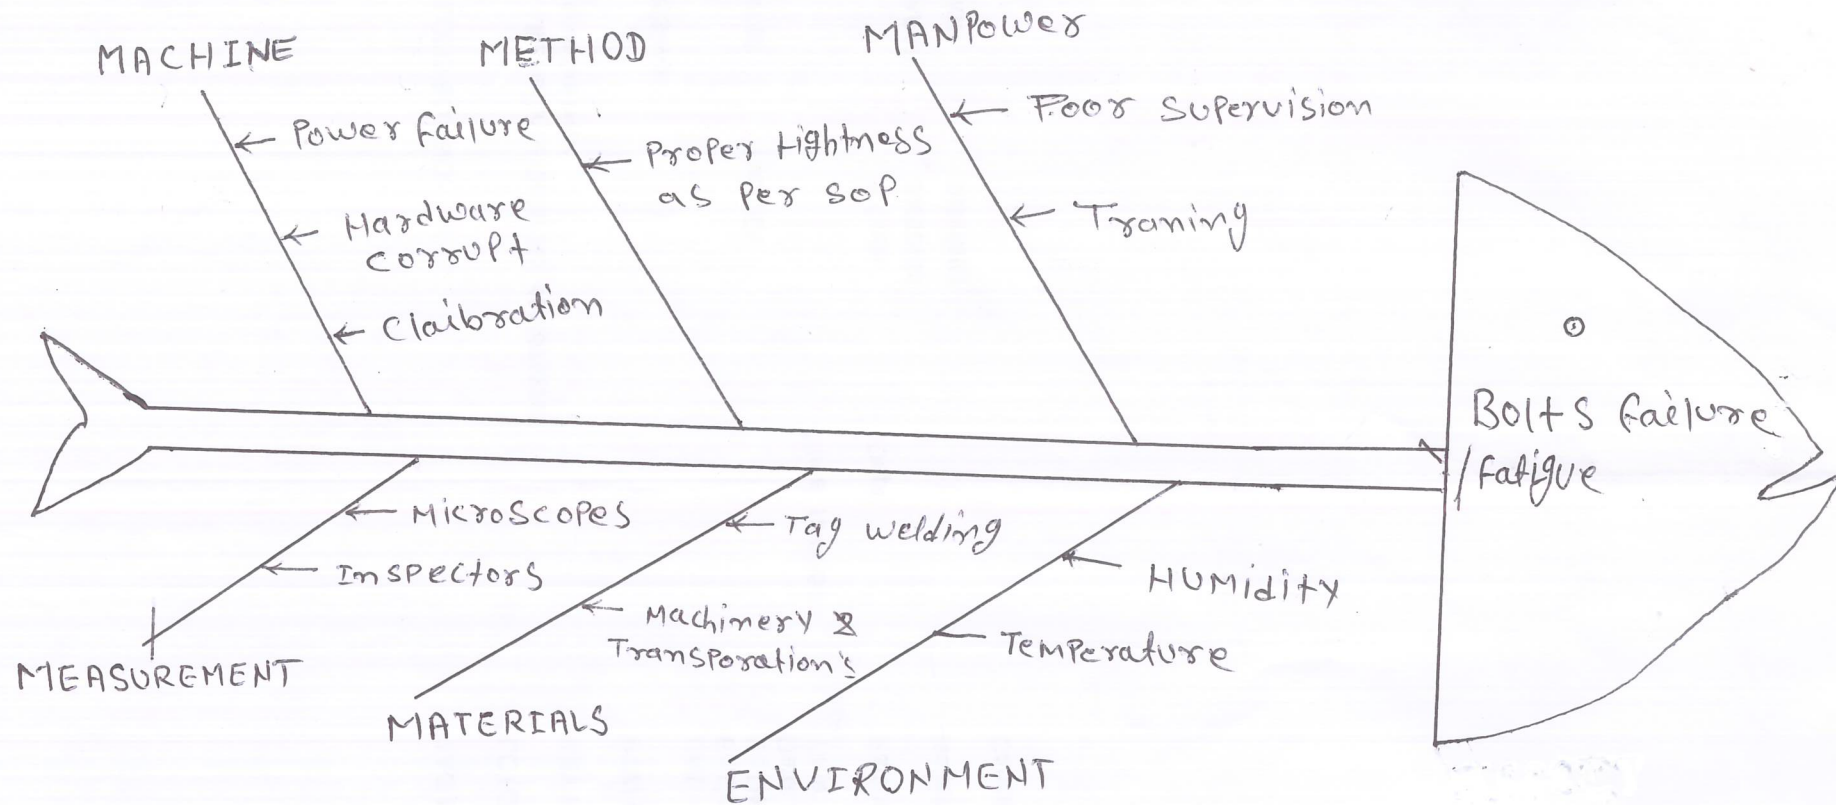 MACHINE
METHOD
MANPOWER
Power failure
Hardware
corrupt
Claibration
Proper tightness
as per SOP
Poor Supervision
Traning
Bolts failure
/fatigue
Microscopes
Inspectors
MEASUREMENT
Tag welding
Machinery &
Transporation's
MATERIALS
HUMidity
Temperature
ENVIRONMENT